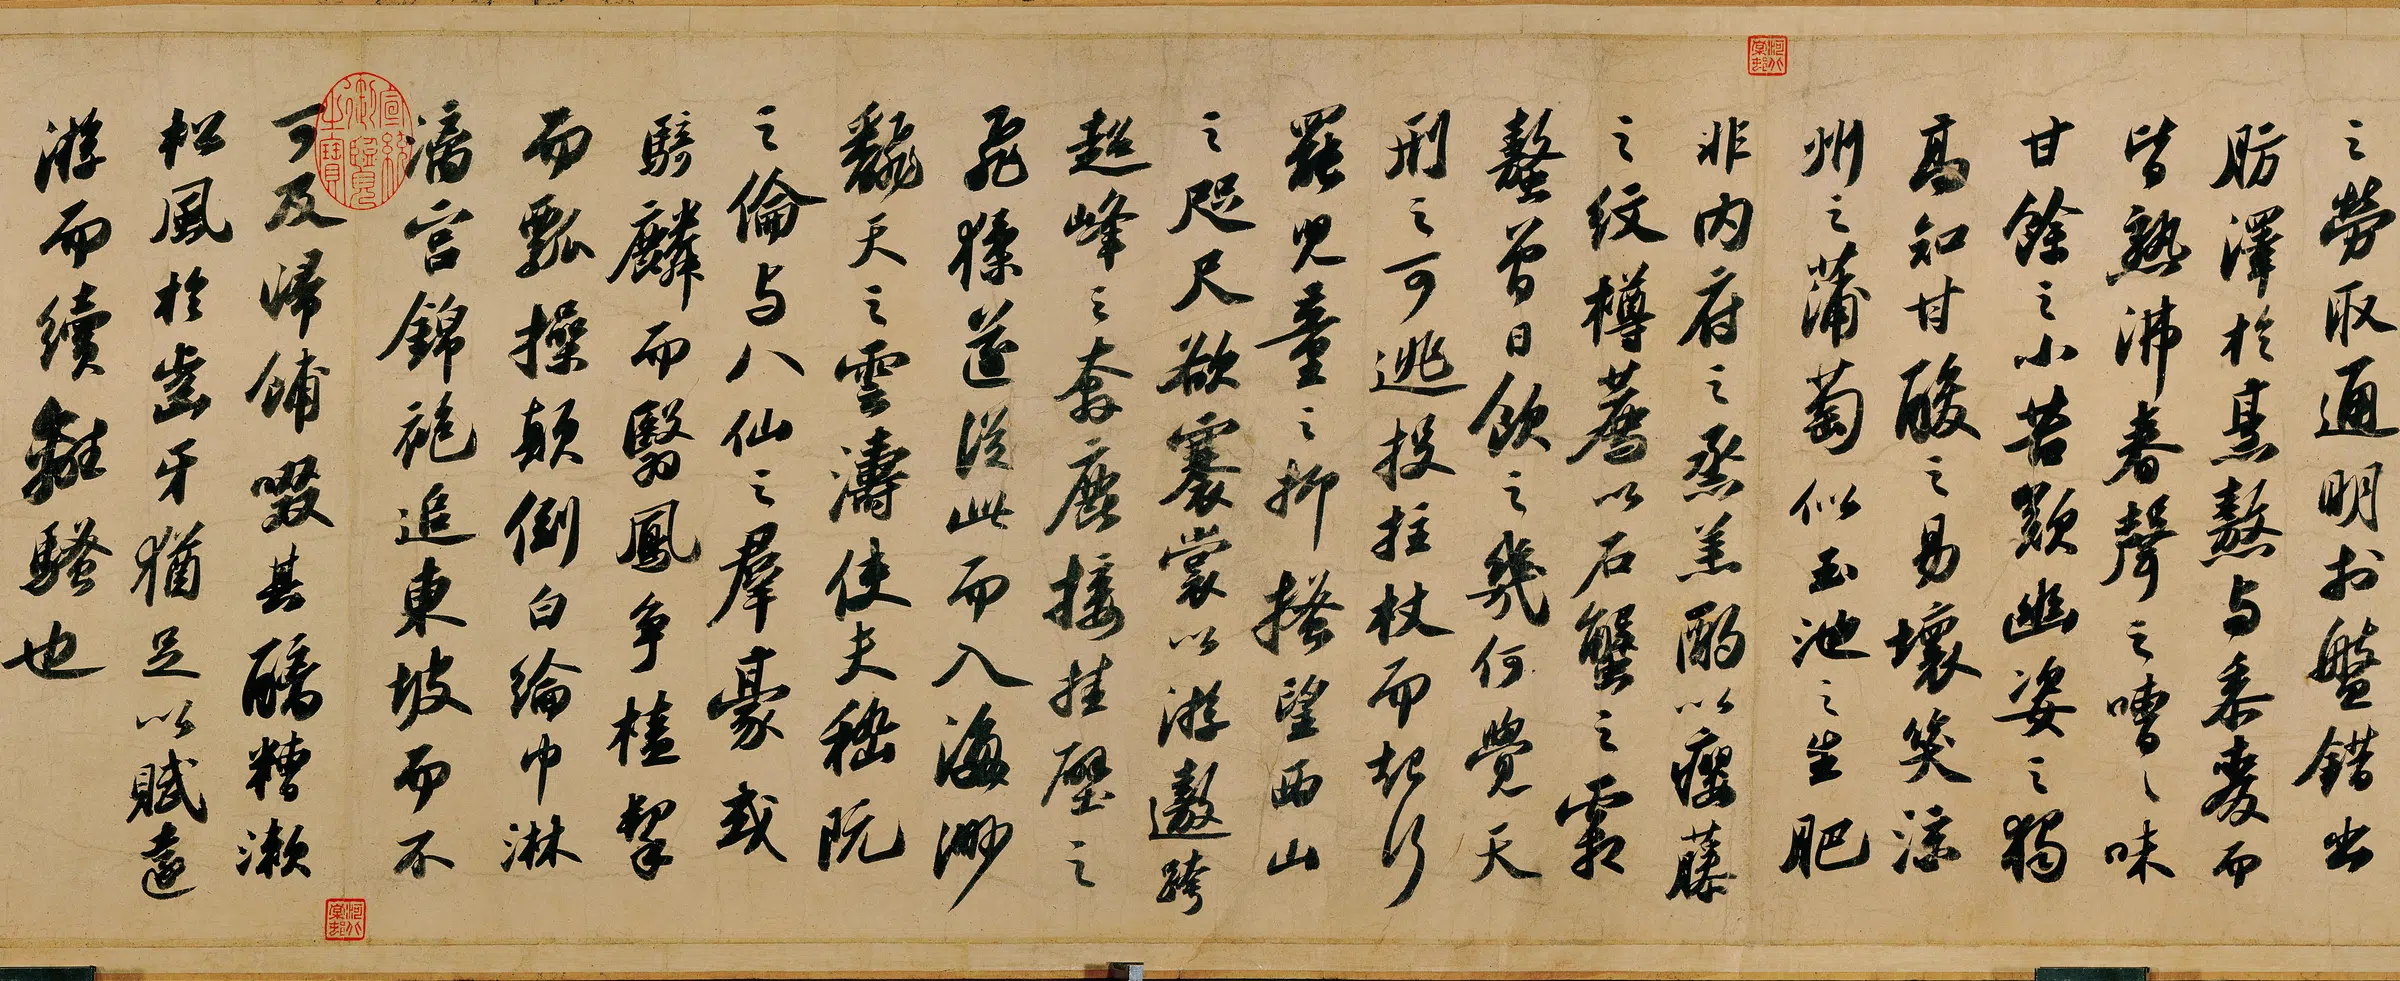 之勞取通明於盤錯出
肪澤於烹熬与黍麥而
皆熟沸舂聲之嘈〻味
甘餘之小苦歎幽姿之獨
高知甘酸之易壞笑涼
州之蒲萄似玉池之生肥
非內府之烝羔酌以癭藤
之紋樽薦以石蟹之霜
螯曾日飲之幾何覺天
刑之可逃投拄杖而起行
罷兒童之抑搔望西山
之咫尺欲褰裳以游遨跨
超峰之奔鹿接挂壁之
飛猱遂從此而入海渺
翻天之雲濤使夫嵇阮
之倫与八仙之羣豪或
騎麟而翳鳳爭榼挈
而瓢操顛倒白綸巾淋
漓宮錦袍追東坡而不
可及歸餔啜其醨糟漱
松風於齒牙猶足以賦遠
游而續離騷也
宣統御覽之寶
河北棠邨
河北棠邨